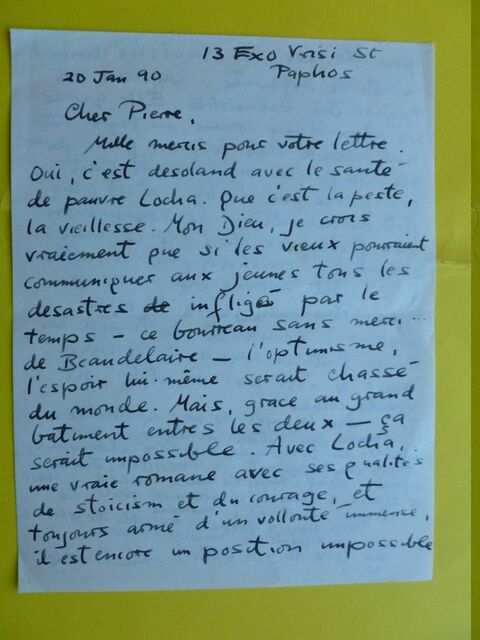 13 Exo Vrisi St
Paphos
20 Jan 90
Cher Pierre,
Mille mercis pour votre lettre.
Oui, c'est desoland avec le santé
de pauvre Locha. Que c'est la peste,
la vieillesse. Mon Dieu, je crois
vraiement que si les vieux pourraient
communiquer aux jeunes tous les
desastres de infligé par le
temps – ce bourreau sans merci...
de Beaudelaire – l'optimisme,
l'espoir lui-même serait chassé
du monde. Mais, grace au grand
batiment entres les deux – ça
serait impossible. Avec Locha,
une vraie romane avec ses qualités
de stoicism et du courage, et
toujours armé d'un vollonté immense,
il est encore un position impossible